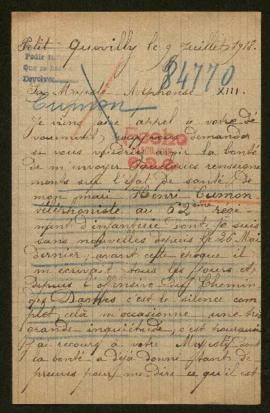 Petit Quevilly le 9 Juillet 1918.
Pedir in
Devolver
84770
Sa Majesté Alphonse XIII.
Cumon
Je viens faire appel à votre
vous demander
si vous voudriez avoir la bonté
de m'envoyer quelques renseigne
ments sur l'état de santé de
mon mari Henri Cumon
téléphoniste au 62ème régi
ment d'infanterie dont je suis
sans nouvelles depuis le 26 Mai
dernier, avant cette époque il
m'écrivait tous les jours et
depuis l'offensive du Chemin
des Dames c'est le silence com
plet cela m'occasionne une très
grande inquiétude, c'est pourquoi
j'ai recours à votre Majesté dont
la bonté a déjà donné tant de
preuves pour me dire ce qu'il est